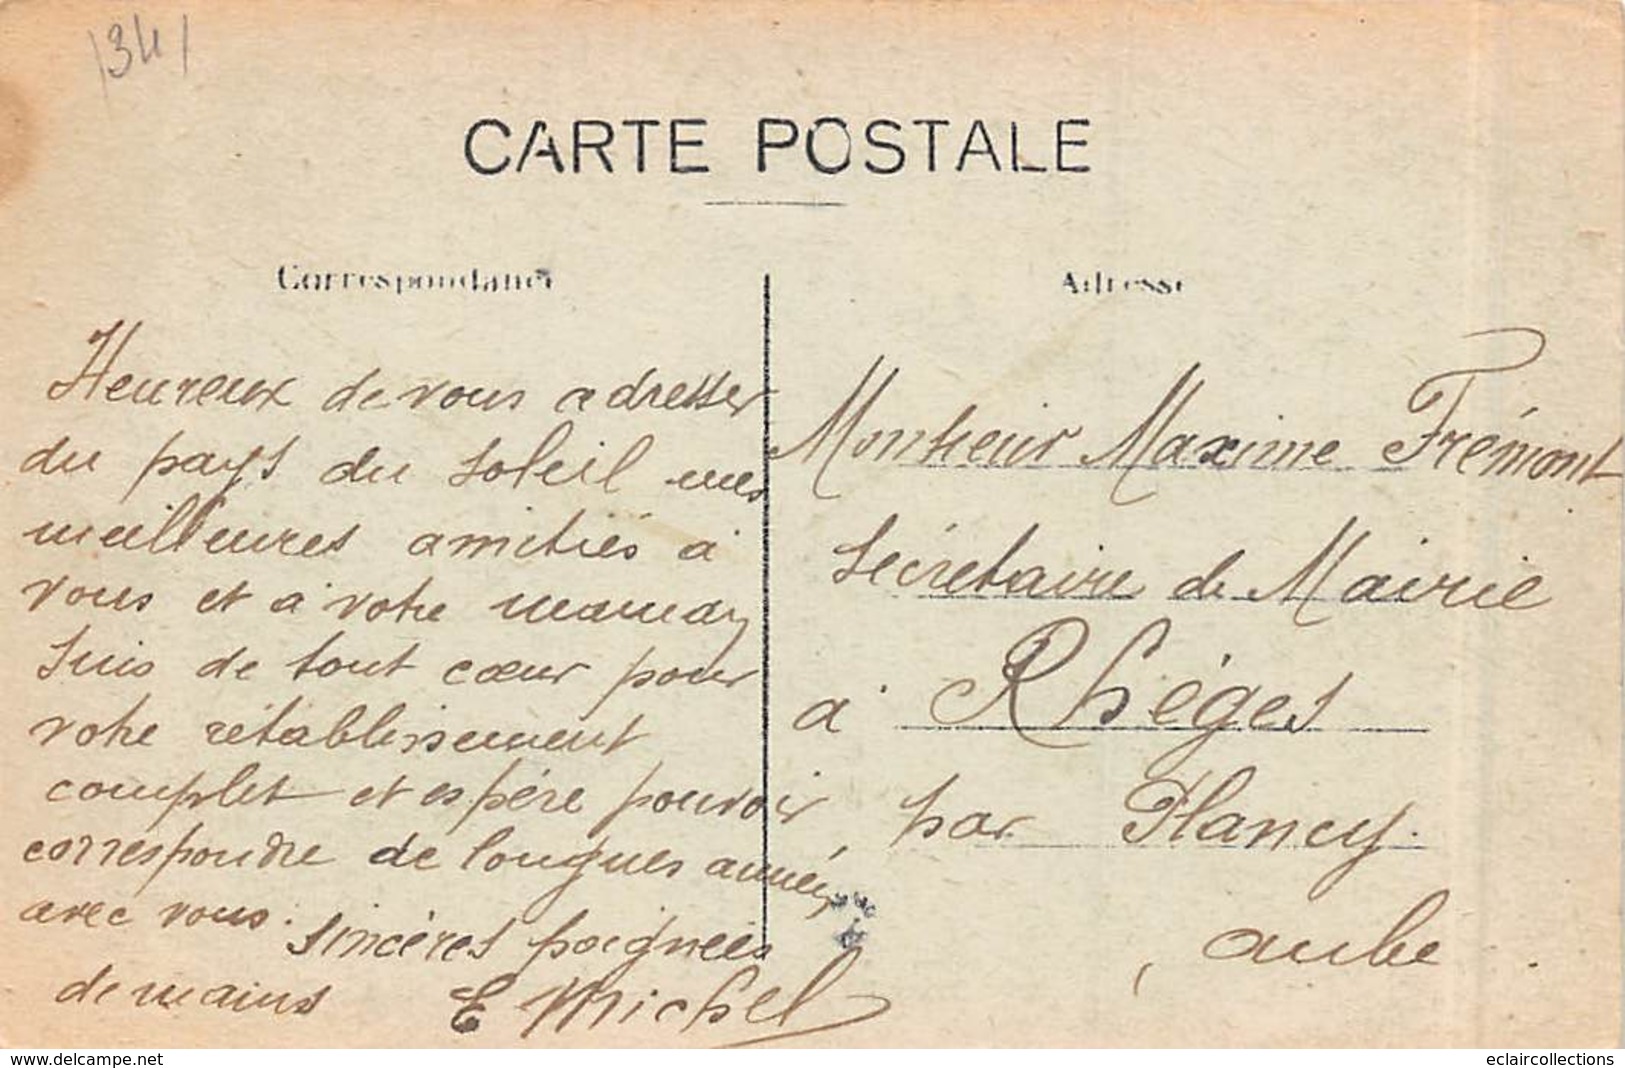 134
CARTE POSTALE
Correspondance
Adresse
Heureux de vous adresser
du pays du soleil mes
meilleures amitiés à
vous et à votre maman
Suis de tout cœur pour
votre rétablissement
complet et espère pouvoir
correspondre de longues années
avec vous. Sincères poignées
de mains E Michel
Monsieur Maxime Frémont
Secrétaire de Mairie
à Rhèges
par Plancy.
aube.
www.delcampe.net
eclaircollections